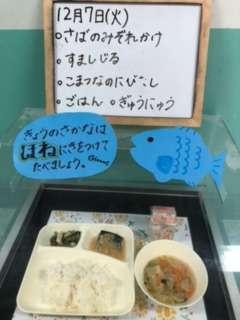 12月7日(火)
○さばのみぞれかけ
○すましじる
○こまつなのにびたし
○ごはん ○ぎゅうにゅう
きょうのさかなは
ほねにきをつけて
たべましょう。